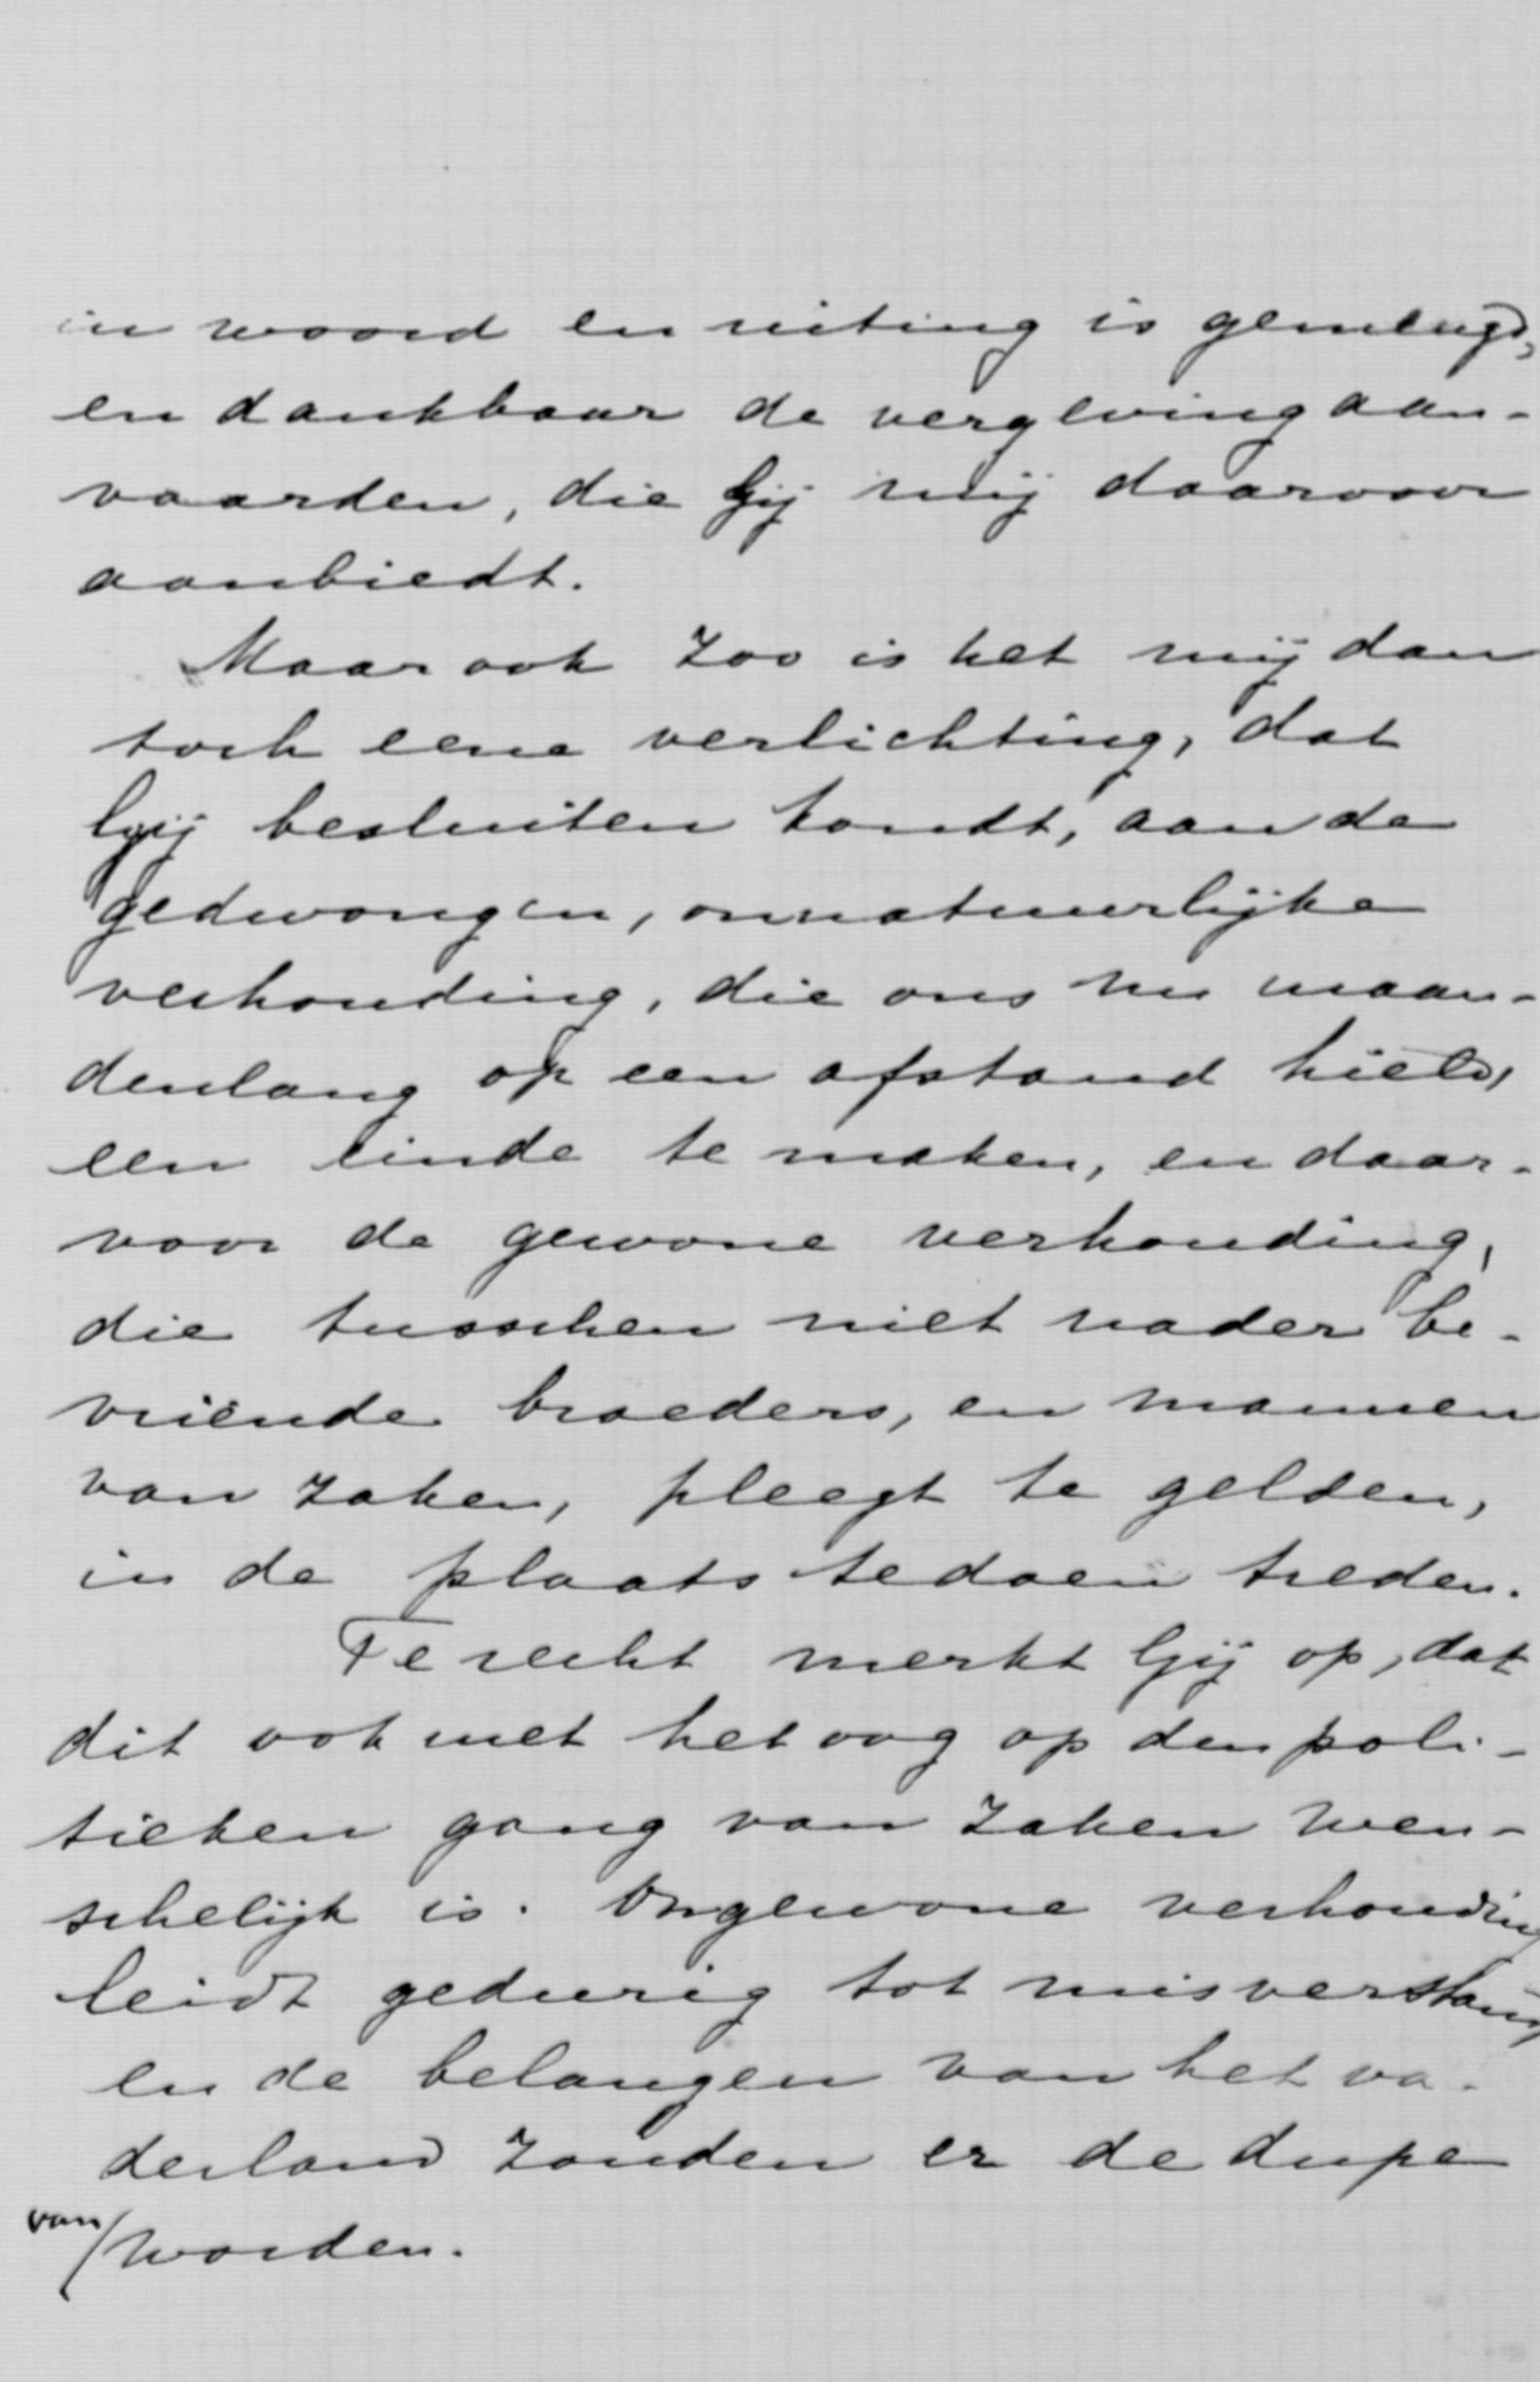 in woord en uiting is gemengd,
en dankbaar de vergeving aan-
vaarden, die Gij mij daarvoor
aanbiedt.
Maar ook zoo is het mij dan
toch eene verlichting, dat
Gij besluiten kondt, aan de
gedwongen, onnatuurlijke
verhouding, die ons nu maan-
denlang op een afstand hield,
een einde te maken, en daar-
voor de gewone verhouding,
die tusschen niet nader be-
vriende broeders, en mannen
van zaken, pleegt te gelden,
in de plaats te doen treden.
Te recht merkt Gij op, dat
dit ook met het oog op den poli-
tieken gang van zaken wen-
schelijk is. Ongewone verhouding
leidt gedurig tot misverstand
en de belangen van het va-
derland zouden er de dupe
van/worden.